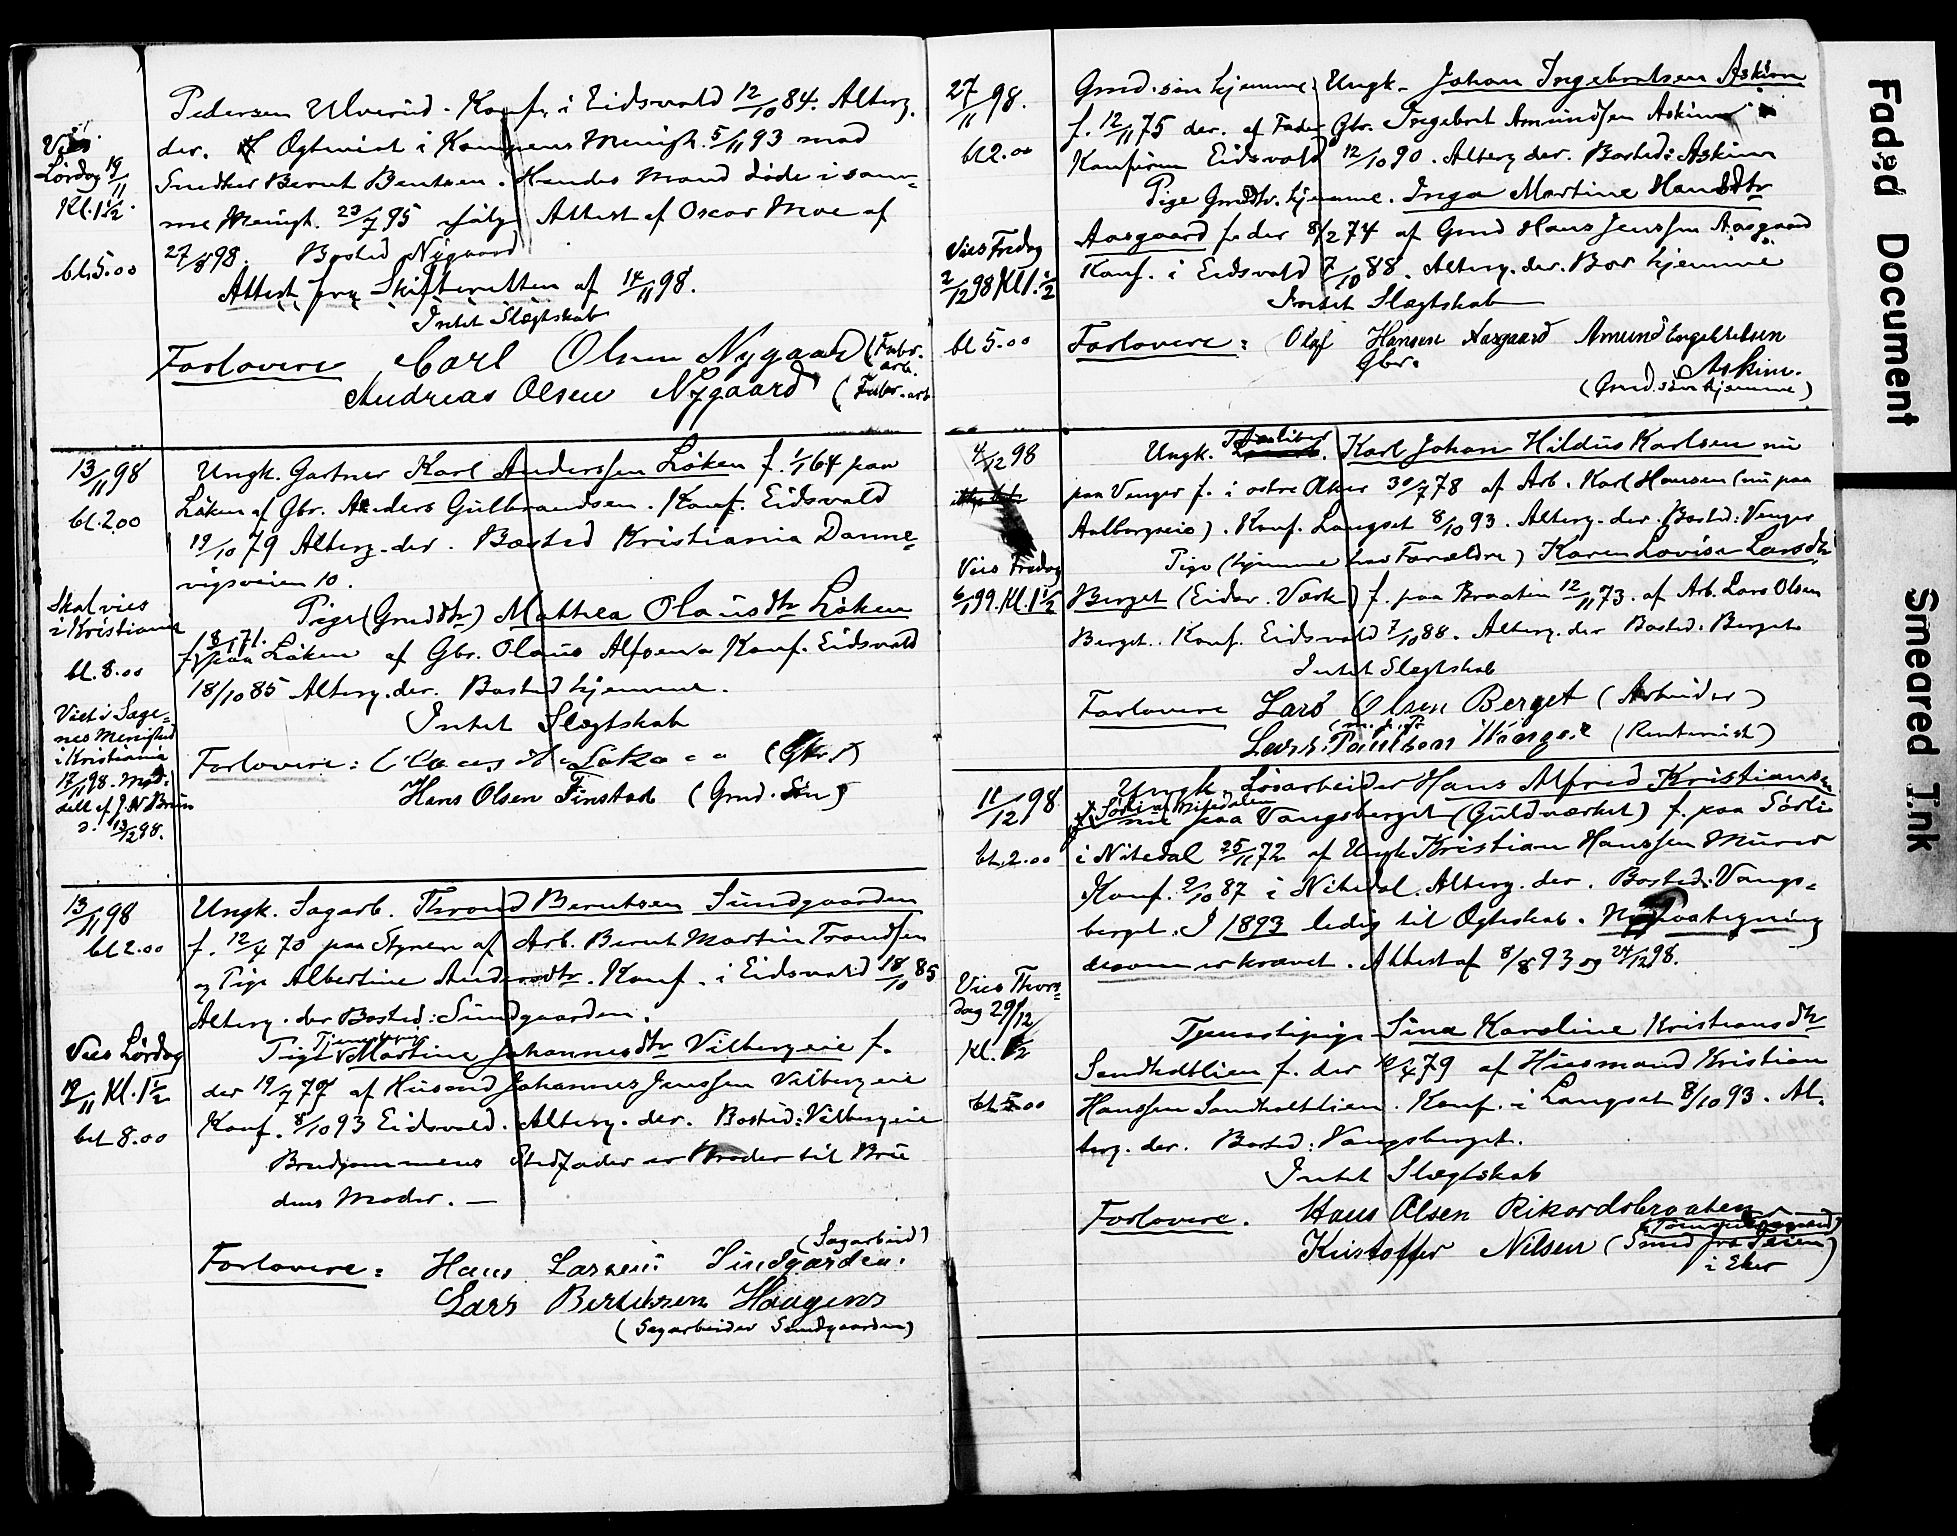 Pedersen Ulverud. Konf. i Eidsvold 12/10 84. Alterg.
der. Ogteviet i Kampens Menigh. 5/11 93 med
Snedker Bernt Bentsen. Hendes Mand døde i sam-
me Menigh. 23/7 95 ifølge Attest af Oscar Moe af
27/8 98. Bosted Nygaard
Attest fra Skifteretten af 14/11 98.
Intet Slægtskab
Forlovere Carl Olsen Nygaard (Fabr.
arb.
Andreas Olsen Nygaard (Fabr. arb
Vies
Lördag 19/11
Kl. 1 1/2.
bt. 5.00
13/11 98
bt. 2.00
Skal vies
i Kristiania
bt. 8.00
Viet i Sage-
nes Menighed
i Kristiania
17/11 98. Med-
delt af J. N. Brun
d. 13/12 98.
Ungk. Gartner Karl Anderssen Løken f. 1/1 64 paa
Løken af Gbr. Anders Gulbrandsen. Konf. Eidsvold
19/10 79 Alterg. der. Bosted Kristiania Danne-
vigsveien 10.
Pige (Grmd dtr) Mathea Olausdtr Løken
f. 8/1 71. paa Løken af Gbr. Olaus Alfsen Konf. Eidsvold
18/10 85 Alterg. der. Bosted hjemme.
Intet Slægtskab
Forlovere: (Gbr.)
Hans Olsen Finstad (Grmd. Søn)
13/11 98
bt 2.00
Vies Lördag
19/11 Kl. 1 1/2
bet 8.00
Ungk. Sagarb. Thrond Berntsen Sundgaarden
f. 12/4 70 paa Styren af Arb. Bernt Martin Trondsen
og Pige Albertine Andersdtr. Konf. i Eidsvold 18/10 85
Alterg. der Bosted: Sundgaarden.
Tjenende
Pige Martine Johannesdtr Vilbergeie f.
der 19/7 77 af Husmd Johannes Jenssen Vilbergeie
Konf. 8/10 93 Eidsvold. Alterg. der. Bosted: Vilbergeie
Brudgommens Stedfader er Broder til Bru
dens Moder. —
(Sagarbeid)
Forlovere: Hans Larsen Sundgarden.
Lars Berntsen Haagens
(Sagarbeider Sundgaarden)
27/11 98.
bt 2.00
Vies Fredag
2/12 98 Kl. 1 1/2
bt 5.00
Grmd. søn hjemme Ungk. Johan Ingebretsen Askim
f. 12/11 75 der. af Fader Gbr. Ingebret Amundsen Askim
Konfirm Eidsvold 12/10 90. Alterg der. Bosted: Askim
Pige Grmddtr. hjemme. Inga Martine Hansdtr
Aasgaard f. der 8/2 74 af Grmd Hans Jenssen Aasgaard
Konf. i Eidsvold 7/10 88. Alterg. der. Bor hjemme
Intet Slægtskab
Forlovere: Olaf Hansen Aasgaard Amund Engebretsen
Gbr. Askim.
(Grmd. søn hjemme)
4/12 98
Vies Fredag
6/1 99. Kl. 1 1/2
Ungk. Karl Johan Hildus Karlsen nu
paa Venger f. i østre Aker 30/7 78 af Arb. Karl Hansen (nu paa
Aalborgeie). Konf. Langset 8/10 93. Alterg. der. Bosted: Venger
Pige (hjemme hos Forældre) Karen Lovise Larsdtr
Berget (Eidsv. Værk) f. paa Braaten 12/11 73. af Arb. Lars Olsen
Berget. Konf. Eidsvold 7/10 88. Alterg. der Bosted. Berget
Intet Slægtskab
Forlovere Lars Olsen Berget (Arbeider)
m. p. P.
Lars Paulsen Winger (Rentenist)
11/12 98
bt. 2.00
Vies Thors-
dag 29/12
Kl. 1 1/2
bt. 5.00
Ungk. Løsarbeider Hans Alfred Kristiansen
nu paa Vangsberget (Guldværket) f. paa Sørli
i Nitedal 25/11 72 af Ungk Kristian Hanssen Murer
Konf. 2/10 87 i Nitedal. Alterg. der. Bosted: Vangs-
berget. I 1893 ledig til Ogteskab. Ny Paategning
desom er krævet. Attest af 8/8 93 og 24/12 98.
Tjenestepige Sina Karoline Kristiansdtr
Sandholtlien f. der 12/4 79 af Husmand Kristian
Hanssen Sandholtlien. Konf. i Langset 8/10 93. Al-
terg. der. Bosted: Vangsberget.
Intet Slægtskab
Forlovere. Hans Olsen Rikardsbraaten
Kristoffer Nilsen (Smed fra Skien)
i Eker
Faded Document
Smeared Ink